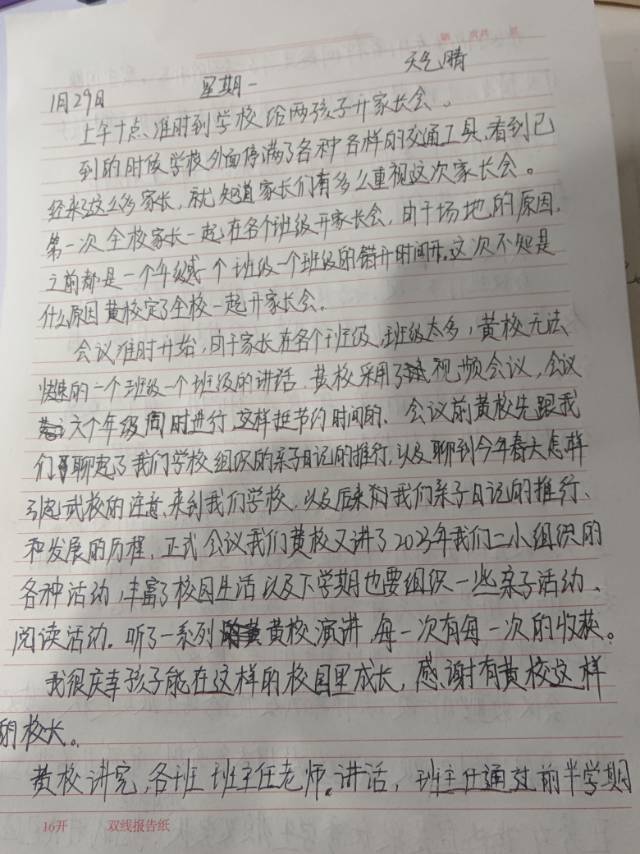 1月29日 星期一 天气晴
上午十点、准时到学校给两孩子开家长会。
到的时候学校外面停满了各种各样的交通工具,看到已
经来这么多家长,就知道家长们有多么重视这次家长会。
第一次全校家长一起在各个班级开家长会,由于场地的原因,
之前都是一个年级一个班级一个班级的错开时间开。这次不知是
什么原因黄校定了全校一起开家长会。
会议准时开始,由于家长在各个班级,班级太多,黄校无法
快速的一个班级一个班级的讲话,黄校采用了视频会议,会议
六个年级同时进行,这样挺节约时间的。会议前黄校先跟我
们聊起了我们学校组织的亲子日记的推行,以及聊到今年春天怎样
引起武校的注意,来到我们学校,以及后来的我们亲子日记的推行、
和发展的历程,正式会议我们黄校又讲了2023年我们二小组织的
各种活动,丰富了校园生活以及下学期也要组织一些亲子活动、
阅读活动。听了一系列黄校演讲,每一次有每一次的收获。
我很庆幸孩子能在这样的校园里成长,感谢有黄校这样
的校长。
黄校讲完,各班班主任老师讲话,班主任通过前半学期
16开 双线报告纸